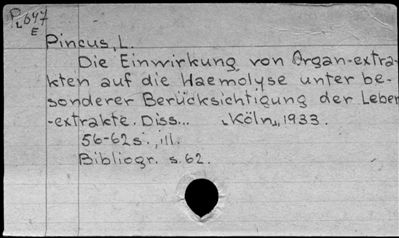 PL647
E
Pincus, L.
Die Einwirkung von Organ-extra-
kten auf die Haemolyse unter be-
sonderer Berücksichtigung der Leber
-extrakte. Diss... Köln, 1933.
56-62s., ill.
Bibliogr. s. 62.